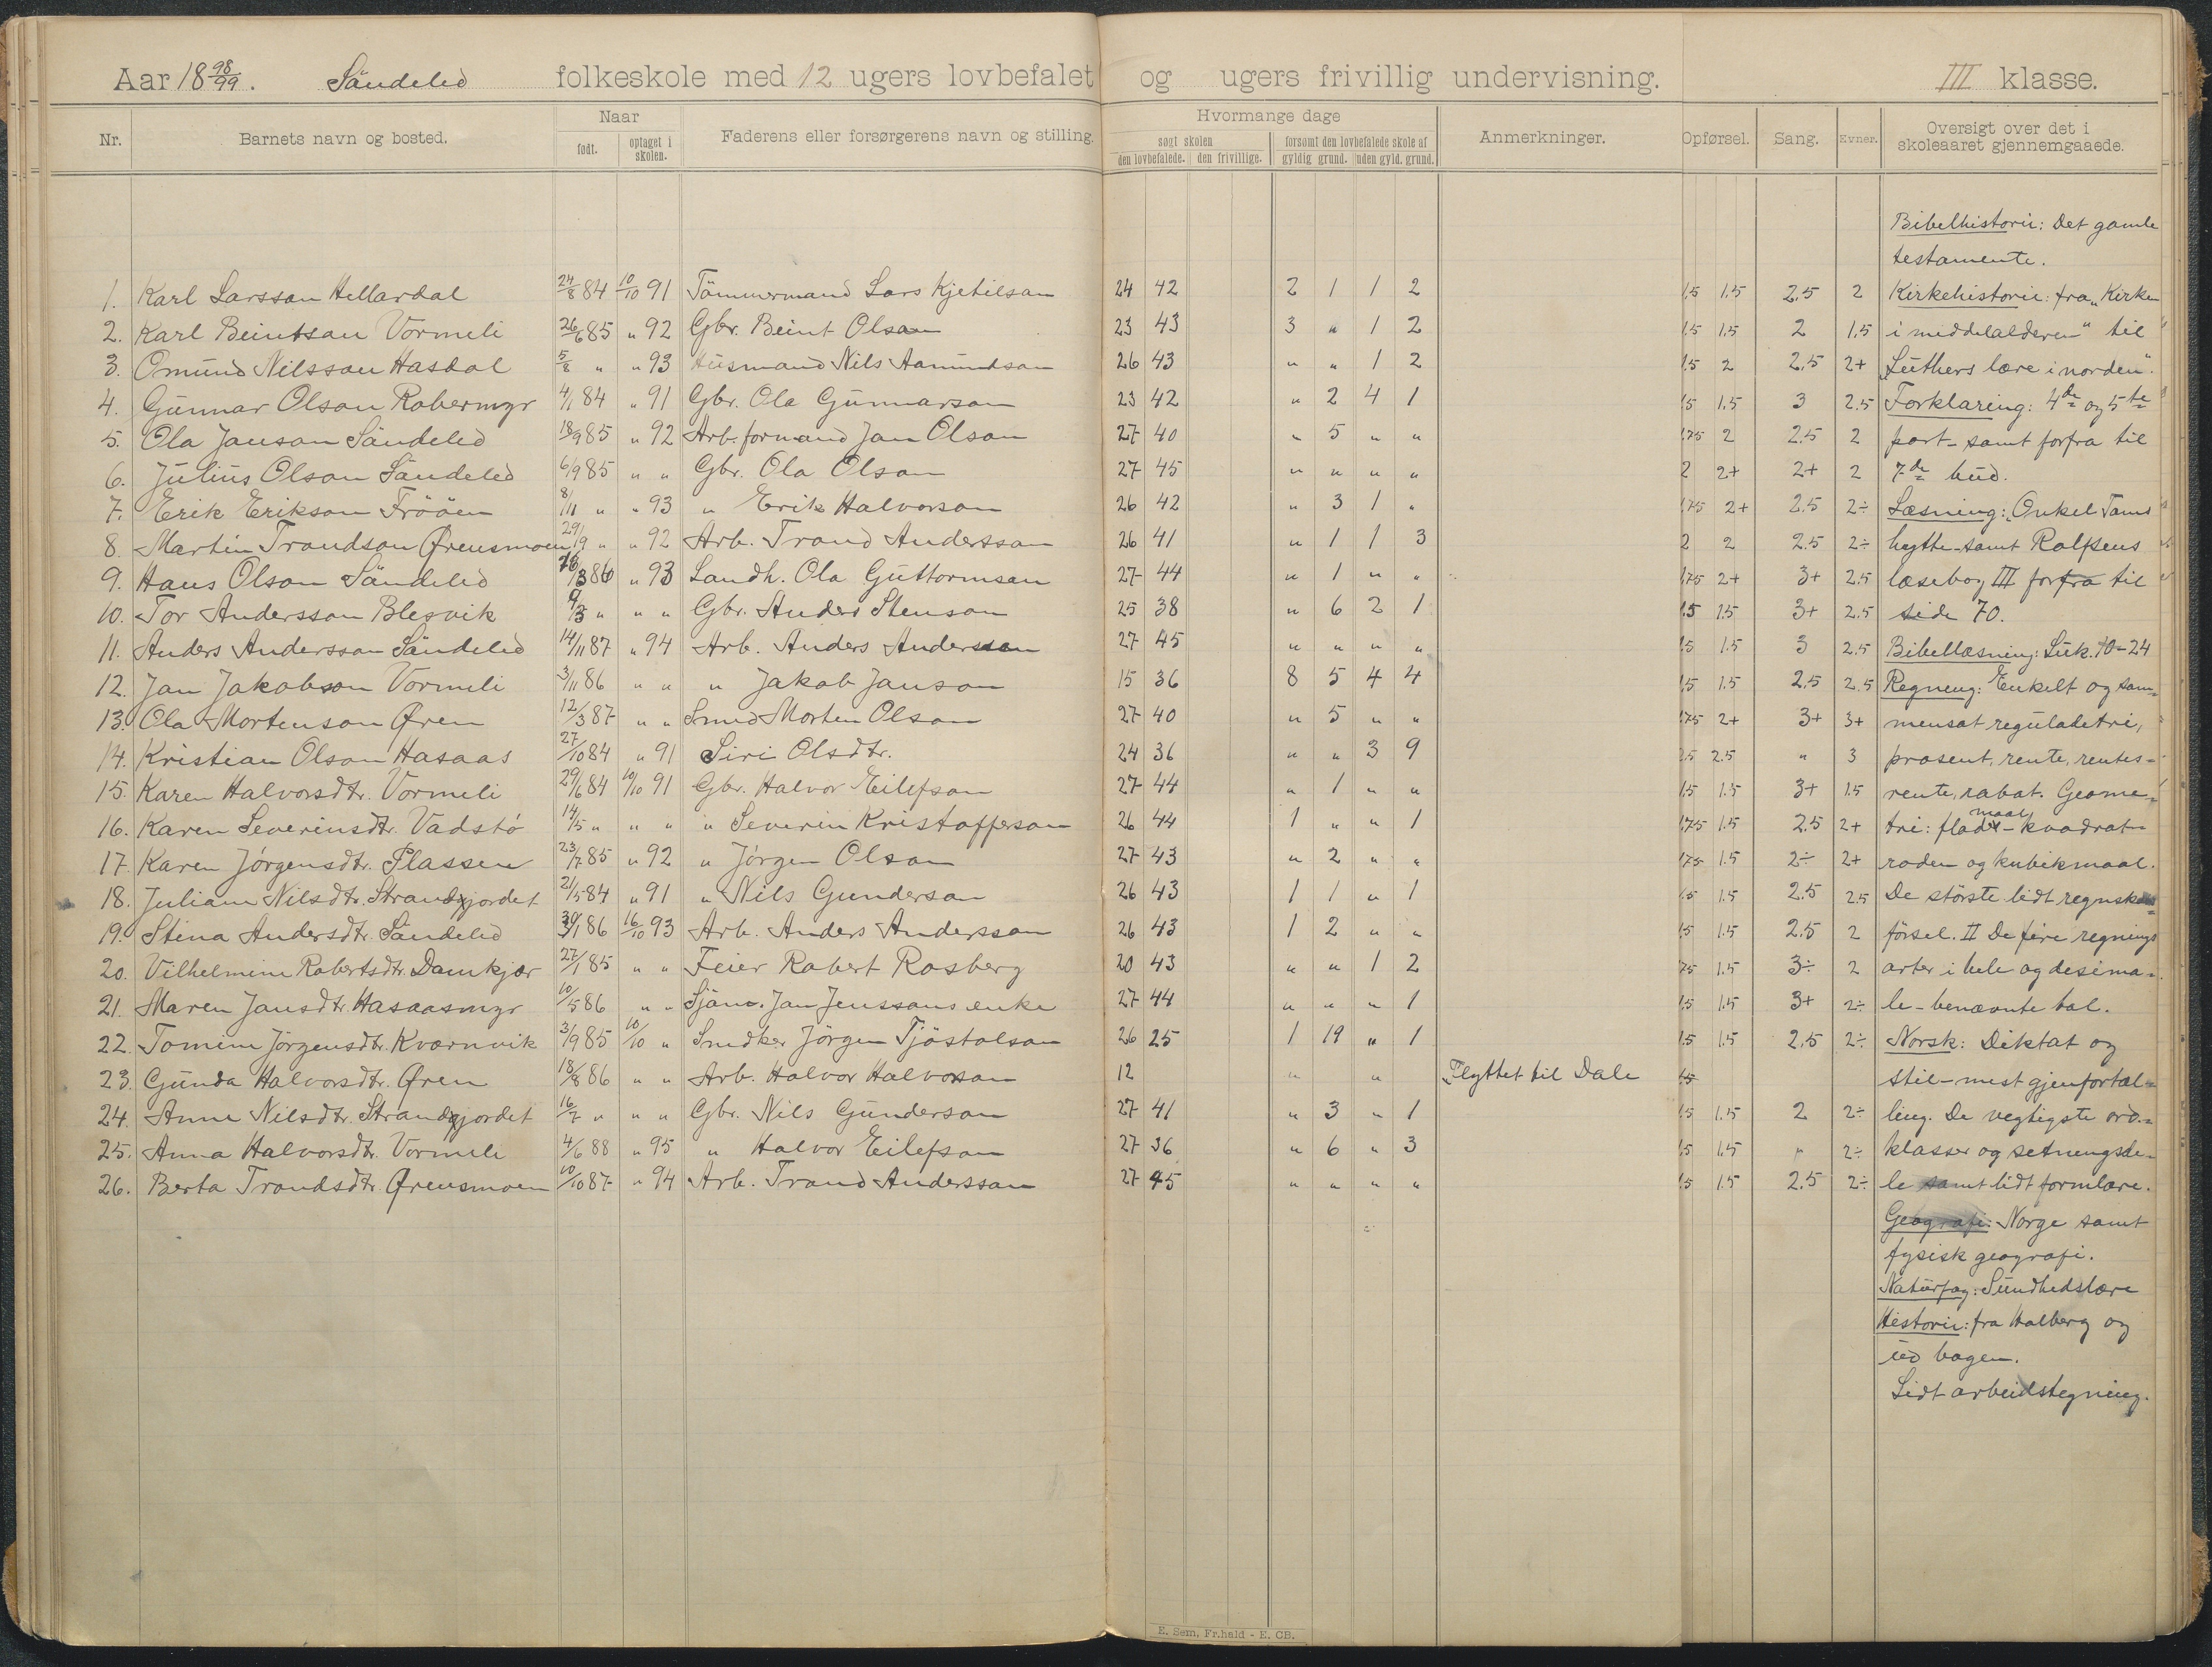 Aar 18 98/99. Söndeled folkeskole med 12 ugers lovbefalet og ugers frivillig undervisning. III klasse.
Nr. Barnets navn og bosted. Naar født. optaget i skolen. Faderens eller forsørgerens navn og stilling. Hvormange dage søgt skolen den lovbefalede. den frivillige. forsømt den lovbefalede skole af gyldig grund. uden gyld. grund. Anmerkninger. Opførsel. Sang. Evner. Oversigt over det i skoleaaret gjennemgaaede.
Bibelhistorie: Det gamle
testamente.
1. Karl Larsson Hellardal 24/8 84 10/10 91 Tömmermand Lars Kjetilson 24 42 2 1 1 2 1.5 1.5 2.5 2 Kirkehistorie: fra „Kirken
2. Karl Beintson Vormeli 26/6 85 „ 92 Gbr. Beint Olson 23 43 3 „ 1 2 1.5 1.5 2 1.5 i middelalderen“ til
3. Omund Nilsson Hasdal 5/8 „ „ 93 Husmand Nils Aamundson 26 43 „ „ 1 2 1.5 2 2.5 2+ „Luthers lære i norden“.
4. Gunnar Olson Robermyr 4/1 84 „ 91 Gbr. Ola Gunnarson 23 42 „ 2 4 1 1.5 1.5 3 2.5 Forklaring: 4de og 5te
5. Ola Janson Söndeled 18/9 85 „ 92 Arb.formand Jan Olson 27 40 „ 5 „ „ 1.75 2 2.5 2 part - samt forfra til
6. Julius Olson Söndeled 6/9 85 „ „ Gbr. Ola Olson 27 45 „ „ „ „ 2 2+ 2+ 2 7de bud.
7. Erik Erikson Frööen 8/11 „ „ 93 „ Erik Halvorson 26 42 „ 3 1 „ 1.75 2+ 2.5 2÷ Læsning: „Onkel Toms
8. Martin Trondson Ørensmoen 29/9 „ „ 92 Arb. Trond Andersson 26 41 „ 1 1 3 2 2 2.5 2÷ hytte - samt Rolfsens
9. Hans Olson Söndeled 16/3 86 „ 93 Landh. Ola Guttormson 27 44 „ 1 „ „ 1.75 2+ 3+ 2.5 læsebog III forfra til
10. Tor Andersson Blesvik 9/3 „ „ „ Gbr. Anders Stenson 25 38 „ 6 2 1 1.5 1.5 3+ 2.5 side 70.
11. Anders Andersson Söndeled 14/11 87 „ 94 Arb. Anders Andersson 27 45 „ „ „ „ 1.5 1.5 3 2.5 Bibellæsning: Luk. 10-24
12. Jan Jakobson Vormeli 3/11 86 „ „ „ Jakob Janson 15 36 8 5 4 4 1.5 1.5 2.5 2.5 Regning: Enkelt og sam-
13. Ola Mortenson Øren 12/3 87 „ „ Smed Morten Olson 27 40 „ 5 „ „ 1.75 2+ 3+ 3+ mensat reguladetri,
14. Kristian Olson Hasaas 27/10 84 „ 91 Siri Olsdtr. 24 36 „ „ 3 9 2.5 2.5 „ 3 prosent, rente, rentes-
15. Karen Halvorsdtr. Vormeli 29/6 84 10/10 91 Gbr. Halvor Eilefson 27 44 „ 1 „ „ 1.5 1.5 3+ 1.5 rente, rabat. Geome-
16. Karen Severinsdtr. Vadstö 14/5 „ „ „ „ Severin Kristofferson 26 44 1 „ „ 1 1.75 1.5 2.5 2+ tri: flademaal - kvadrat-
17. Karen Jörgensdtr. Plassen 23/7 85 „ 92 „ Jörgen Olson 27 43 „ 2 „ „ 1.75 1.5 2÷ 2+ roden og kubikmaal.
18. Juliane Nilsdtr. Strandgjordet 21/5 84 „ 91 „ Nils Gunderson 26 43 1 1 „ 1 1.5 1.5 2.5 2.5 De störste lidt regnskabs-
19. Stina Andersdtr. Söndeled 30/1 86 16/10 93 Arb. Anders Andersson 26 43 1 2 „ „ 1.5 1.5 2.5 2 försel. II De fire regnings
20. Vilhelmine Robertsdtr. Damkjær 27/1 85 „ „ Feier Robert Rosberg 20 43 „ „ 1 2 1.75 1.5 3÷ 2 arter i hele og desima-
21. Maren Jansdtr. Hasaasmyr 10/5 86 „ „ Sjöm. Jan Jenssons enke 27 44 „ „ „ 1 1.5 1.5 3+ 2÷ le - benævnte tal.
22. Tomine Jörgensdtr. Kvarnvik 3/9 85 10/10 „ Snedker Jörgen Tjöstolson 26 25 1 19 „ 1 1.5 1.5 2.5 2÷ Norsk: Diktat og
23. Gunda Halvorsdtr. Øren 18/8 86 „ „ Arb. Halvor Halvorson 12 „ „ Flyttet til Dale 1.5 stil - mest gjenfortæl-
24. Anne Nilsdtr. Strandgjordet 16/7 „ „ „ Gbr. Nils Gunderson 27 41 „ 3 „ 1 1.5 1.5 2 2÷ ling. De vegtigste ord-
25. Anna Halvorsdtr. Vormeli 4/6 88 „ 95 „ Halvor Eilefson 27 36 „ 6 „ 3 1.5 1.5 „ 2÷ klasser og setningsde-
26. Berta Trondsdtr. Ørensmoen 10/10 87 „ 94 Arb. Trond Andersson 27 45 „ „ „ „ 1.5 1.5 2.5 2÷ le samt lidt formlære.
Geografi: Norge samt
fysisk geografi.
Naturfag: Sundhedslære
Historie: fra Holberg og
ud bogen.
Lidt arbeidstegning.
E. Sem, Fr.hald - E. CB.